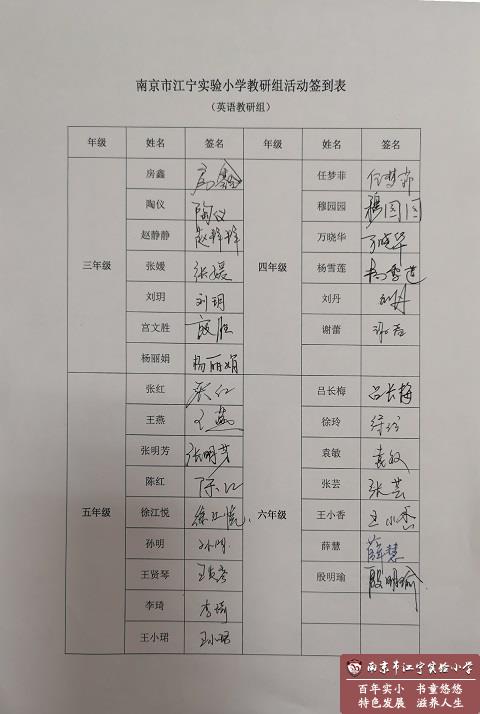 南京市江宁实验小学教研组活动签到表
（英语教研组）
年级 姓名 签名 年级 姓名 签名
三年级
房鑫 房鑫
陶仪 陶仪
赵静静 赵静静
张媛 张媛
刘玥 刘玥
宫文胜
杨丽娟 杨丽娟
四年级
任梦菲 任梦菲
穆园园 穆园园
万晓华 万晓华
杨雪莲 杨雪莲
刘丹 刘丹
谢蕾
五年级
张红 张红
王燕 王燕
张明芳 张明芳
陈红 陈红
徐江悦 徐江悦
孙明 孙明
王贤琴
李琦 李琦
王小珺 王小珺
六年级
吕长梅 吕长梅
徐玲 徐玲
袁敏 袁敏
张芸 张芸
王小香 王小香
薛慧 薛慧
殷明瑜 殷明瑜
南京市江宁实验小学
百年实小 书童悠悠
特色发展 滋养人生